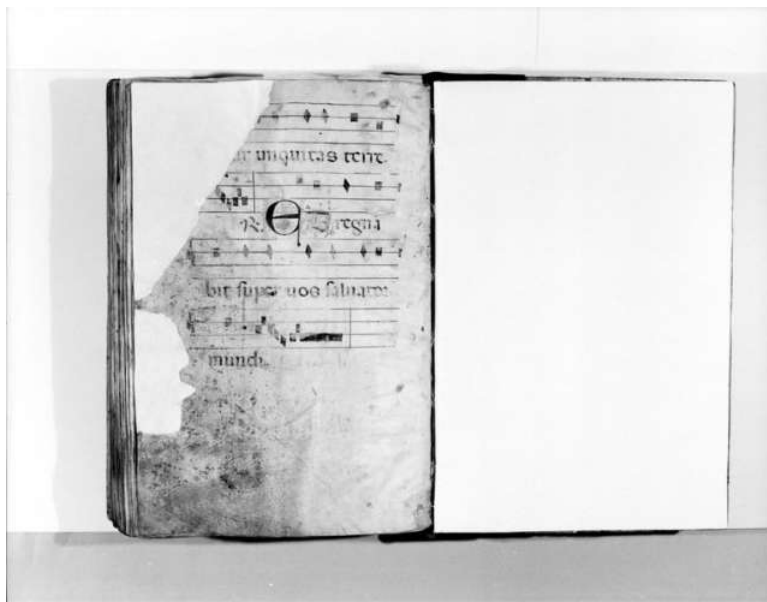 iniquitas terre.
R. Et regna
bit super uos saluator
mundi.